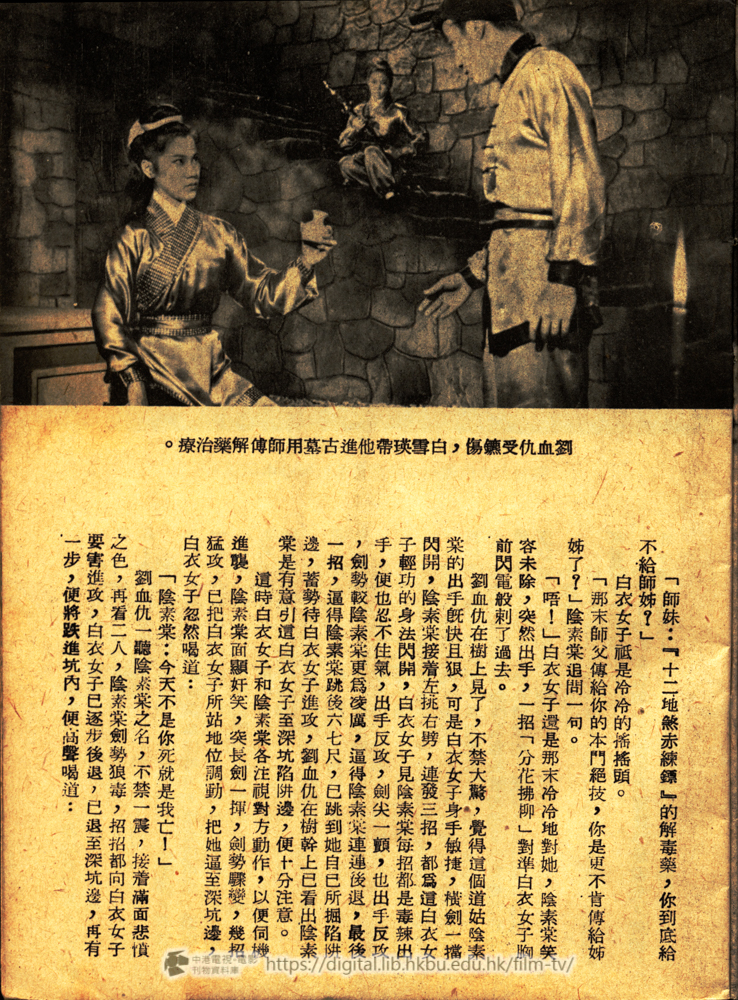 劉血仇受鑣傷，白雪瑛帶他進古墓用師傅解藥治療。
「師妹：『十二地煞赤練鏢』的解毒藥，你到底給
不給師姊？」
白衣女子祗是冷冷的搖搖頭。
「那末師父傳給你的本門絕技，你是更不肯傳給姊
姊了？」陰素棠追問一句。
「唔！」白衣女子還是那末冷冷地對她，陰素棠笑
容未除，突然出手，一招「分花拂柳」對準白衣女子胸
前閃電般刺了過去。
劉血仇在樹上見了，不禁大驚，覺得這個道姑陰素
棠的出手旣快且狠，可是白衣女子身手敏捷，橫劍一擋
閃開，陰素棠接着左挑右劈，連發三招，都爲這白衣女
子輕功的身法閃開，白衣女子見陰素棠每招都是毒辣出
手，便也忍不住氣，出手反攻，劍尖一顫，也出手反攻
，劍勢較陰素棠更爲凌厲，逼得陰素棠連連後退，最後
一招，逼得陰素棠跳後六七尺，已跳到她自已所掘陷阱
邊，蓄勢待白衣女子進攻，劉血仇在樹幹上已看出陰素
棠是有意引這白衣女子至深坑陷阱邊，便十分注意。
這時白衣女子和陰素棠各注視對方動作，以便伺機
進襲，陰素棠面顯奸笑，突長劍一揮，劍勢驟變，幾招
猛攻，已把白衣女子所站地位調動，把她逼至深坑邊，
白衣女子忽然喝道：
「陰素棠：今天不是你死就是我亡！」
劉血仇一聽陰素棠之名，不禁一震，接着滿面悲憤
之色，再看二人，陰素棠劍勢狼毒，招招都向白衣女子
要害進攻，白衣女子已逐步後退，已退至深坑邊，再有
一步，便將跌進坑內，便高聲喝道：
中港電視·電影
刊物資料庫
https://digital.lib.hkbu.edu.hk/film-tv/